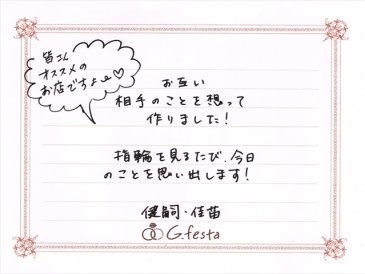 皆さん
オススメの
お店ですよー♡
お互い
相手のことを想って
作りました!
指輪を見るたび、今日
のことを思い出します!
健嗣・佳苗
G.festa